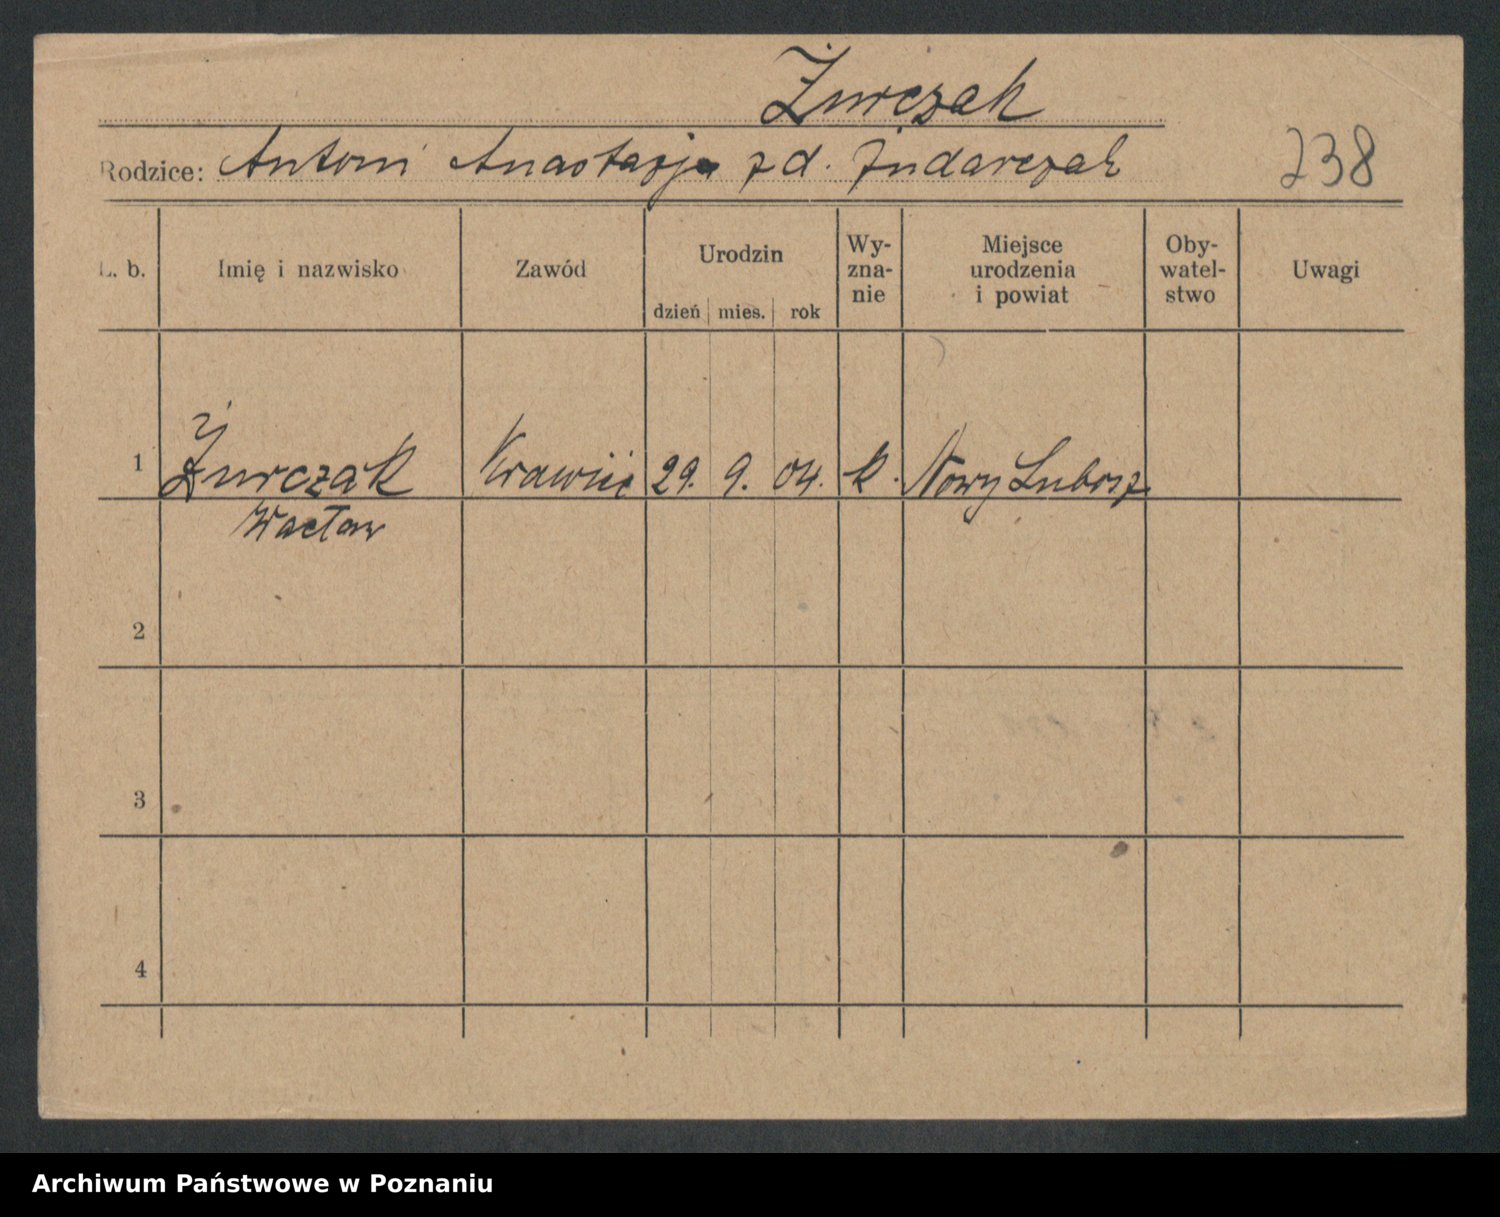 Żurczak
Rodzice: Antoni Anastazja zd. Żudarczak
238
L. b. Imię i nazwisko Zawód Urodzin dzień mies. rok Wy-zna-nie Miejsce urodzenia i powiat Oby-watel-stwo Uwagi
1 Żurczak Krawiec 29. 9. 04. k. Nowy Lubosz
Wacław
2
3
4
Archiwum Państwowe w Poznaniu